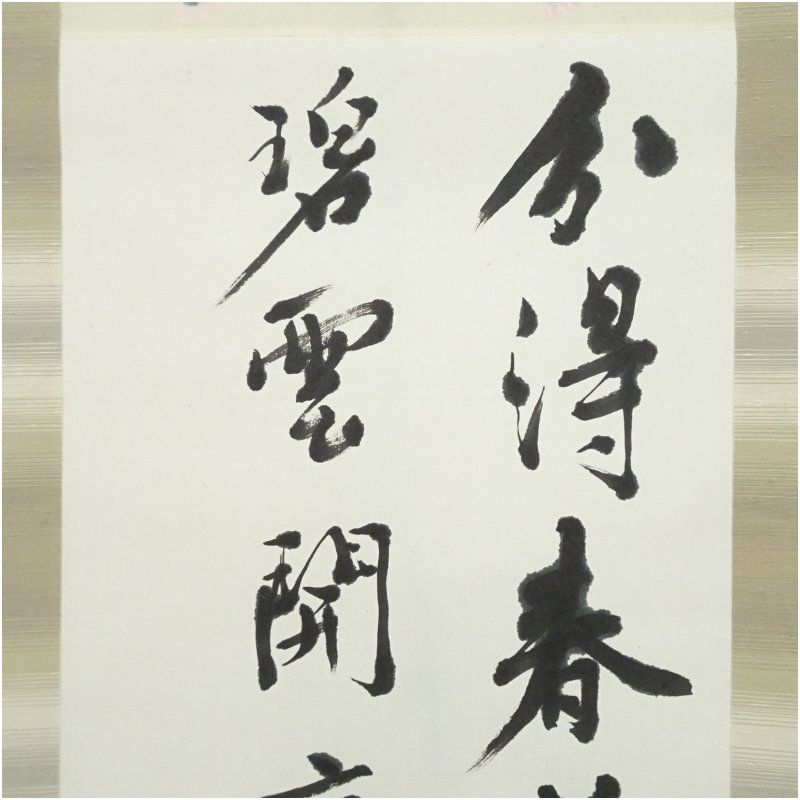 分得春
碧雲開